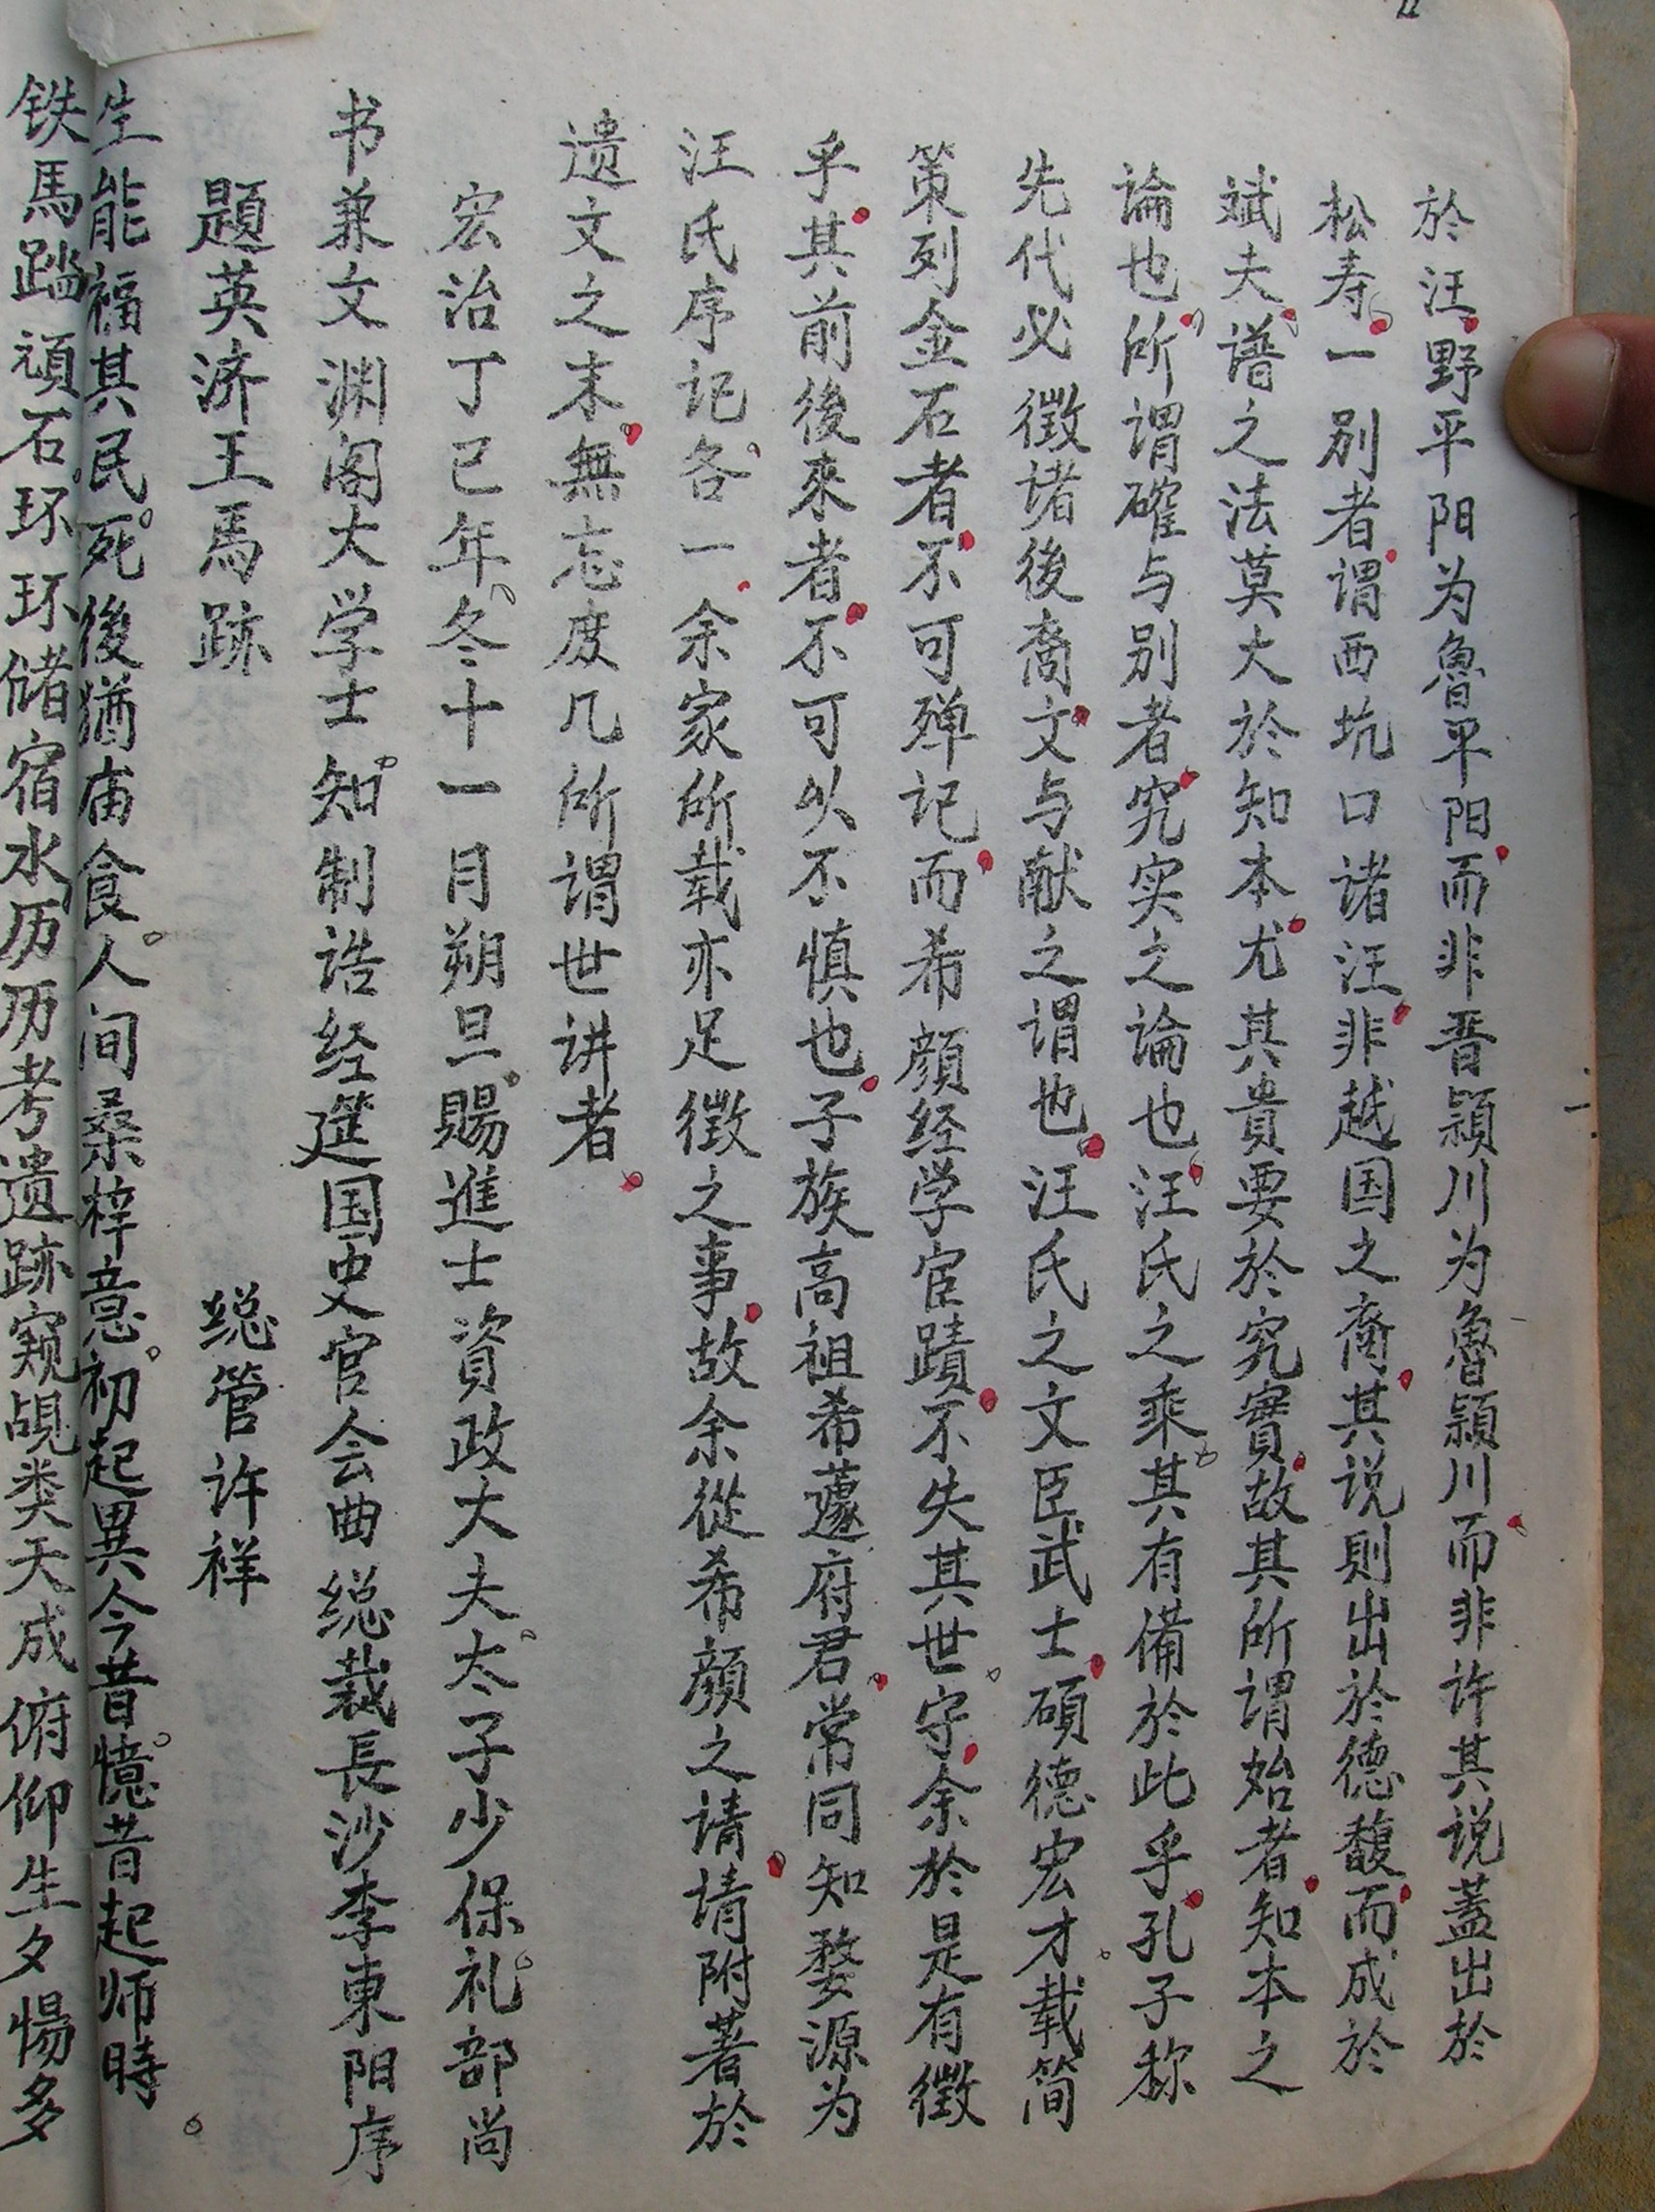 於汪野平阳为魯平阳而非晋颍川为魯颍川而非许其说蓋出於
松寿一别者谓西坑口诸汪非越国之裔其说則出於德馥而成於
斌夫谱之法莫大於知本尤其貴要於究實故其所谓始者知本之
論也所谓確与别者究实之論也汪氏之乘其有備於此乎孔子称
先代必徵堵後裔文与献之谓也汪氏之文臣武士碩德宏才载简
策列金石者不可殚记而希颜经学宦蹟不失其世守余於是有徵
乎其前後來者不可以不慎也子族高祖希蘧府君常同知婺源为
汪氏序记各一余家所载亦足徵之事故余從希颜之请请附著於
遗文之末無忘度几所谓世讲者
宏治丁已年冬十一月朔旦賜進士資政大夫太子少保礼部尚
书兼文渊阁大学士知制诰经筵国史官会典总裁長沙李東阳序
題英济王馬跡 総管许祥
生能福其民死後猶庙食人间桑梓意初起異今昔憶昔起师時
铁馬踏頑石环环储宿水历历考遗跡窥觇类天成俯仰生夕惕多